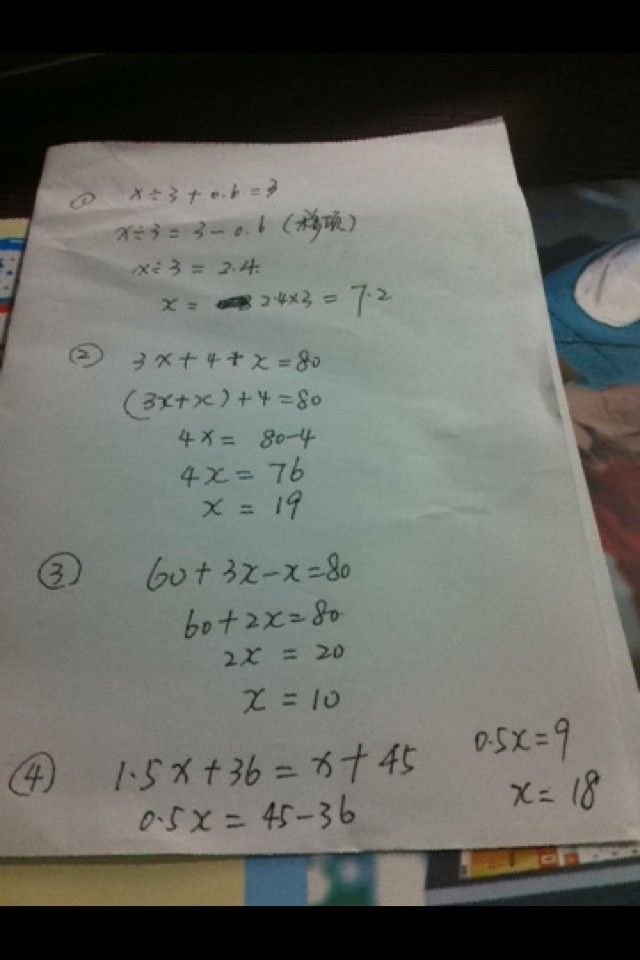 ① x÷3+0.6=3
x÷3=3-0.6(移项)
x÷3=2.4
x= 2.4×3=7.2
② 3x+4+x=80
(3x+x)+4=80
4x= 80-4
4x=76
x=19
③ 60+3x-x=80
60+2x=80
2x=20
x=10
④ 1.5x+36=x+45
0.5x=45-36
0.5x=9
x=18